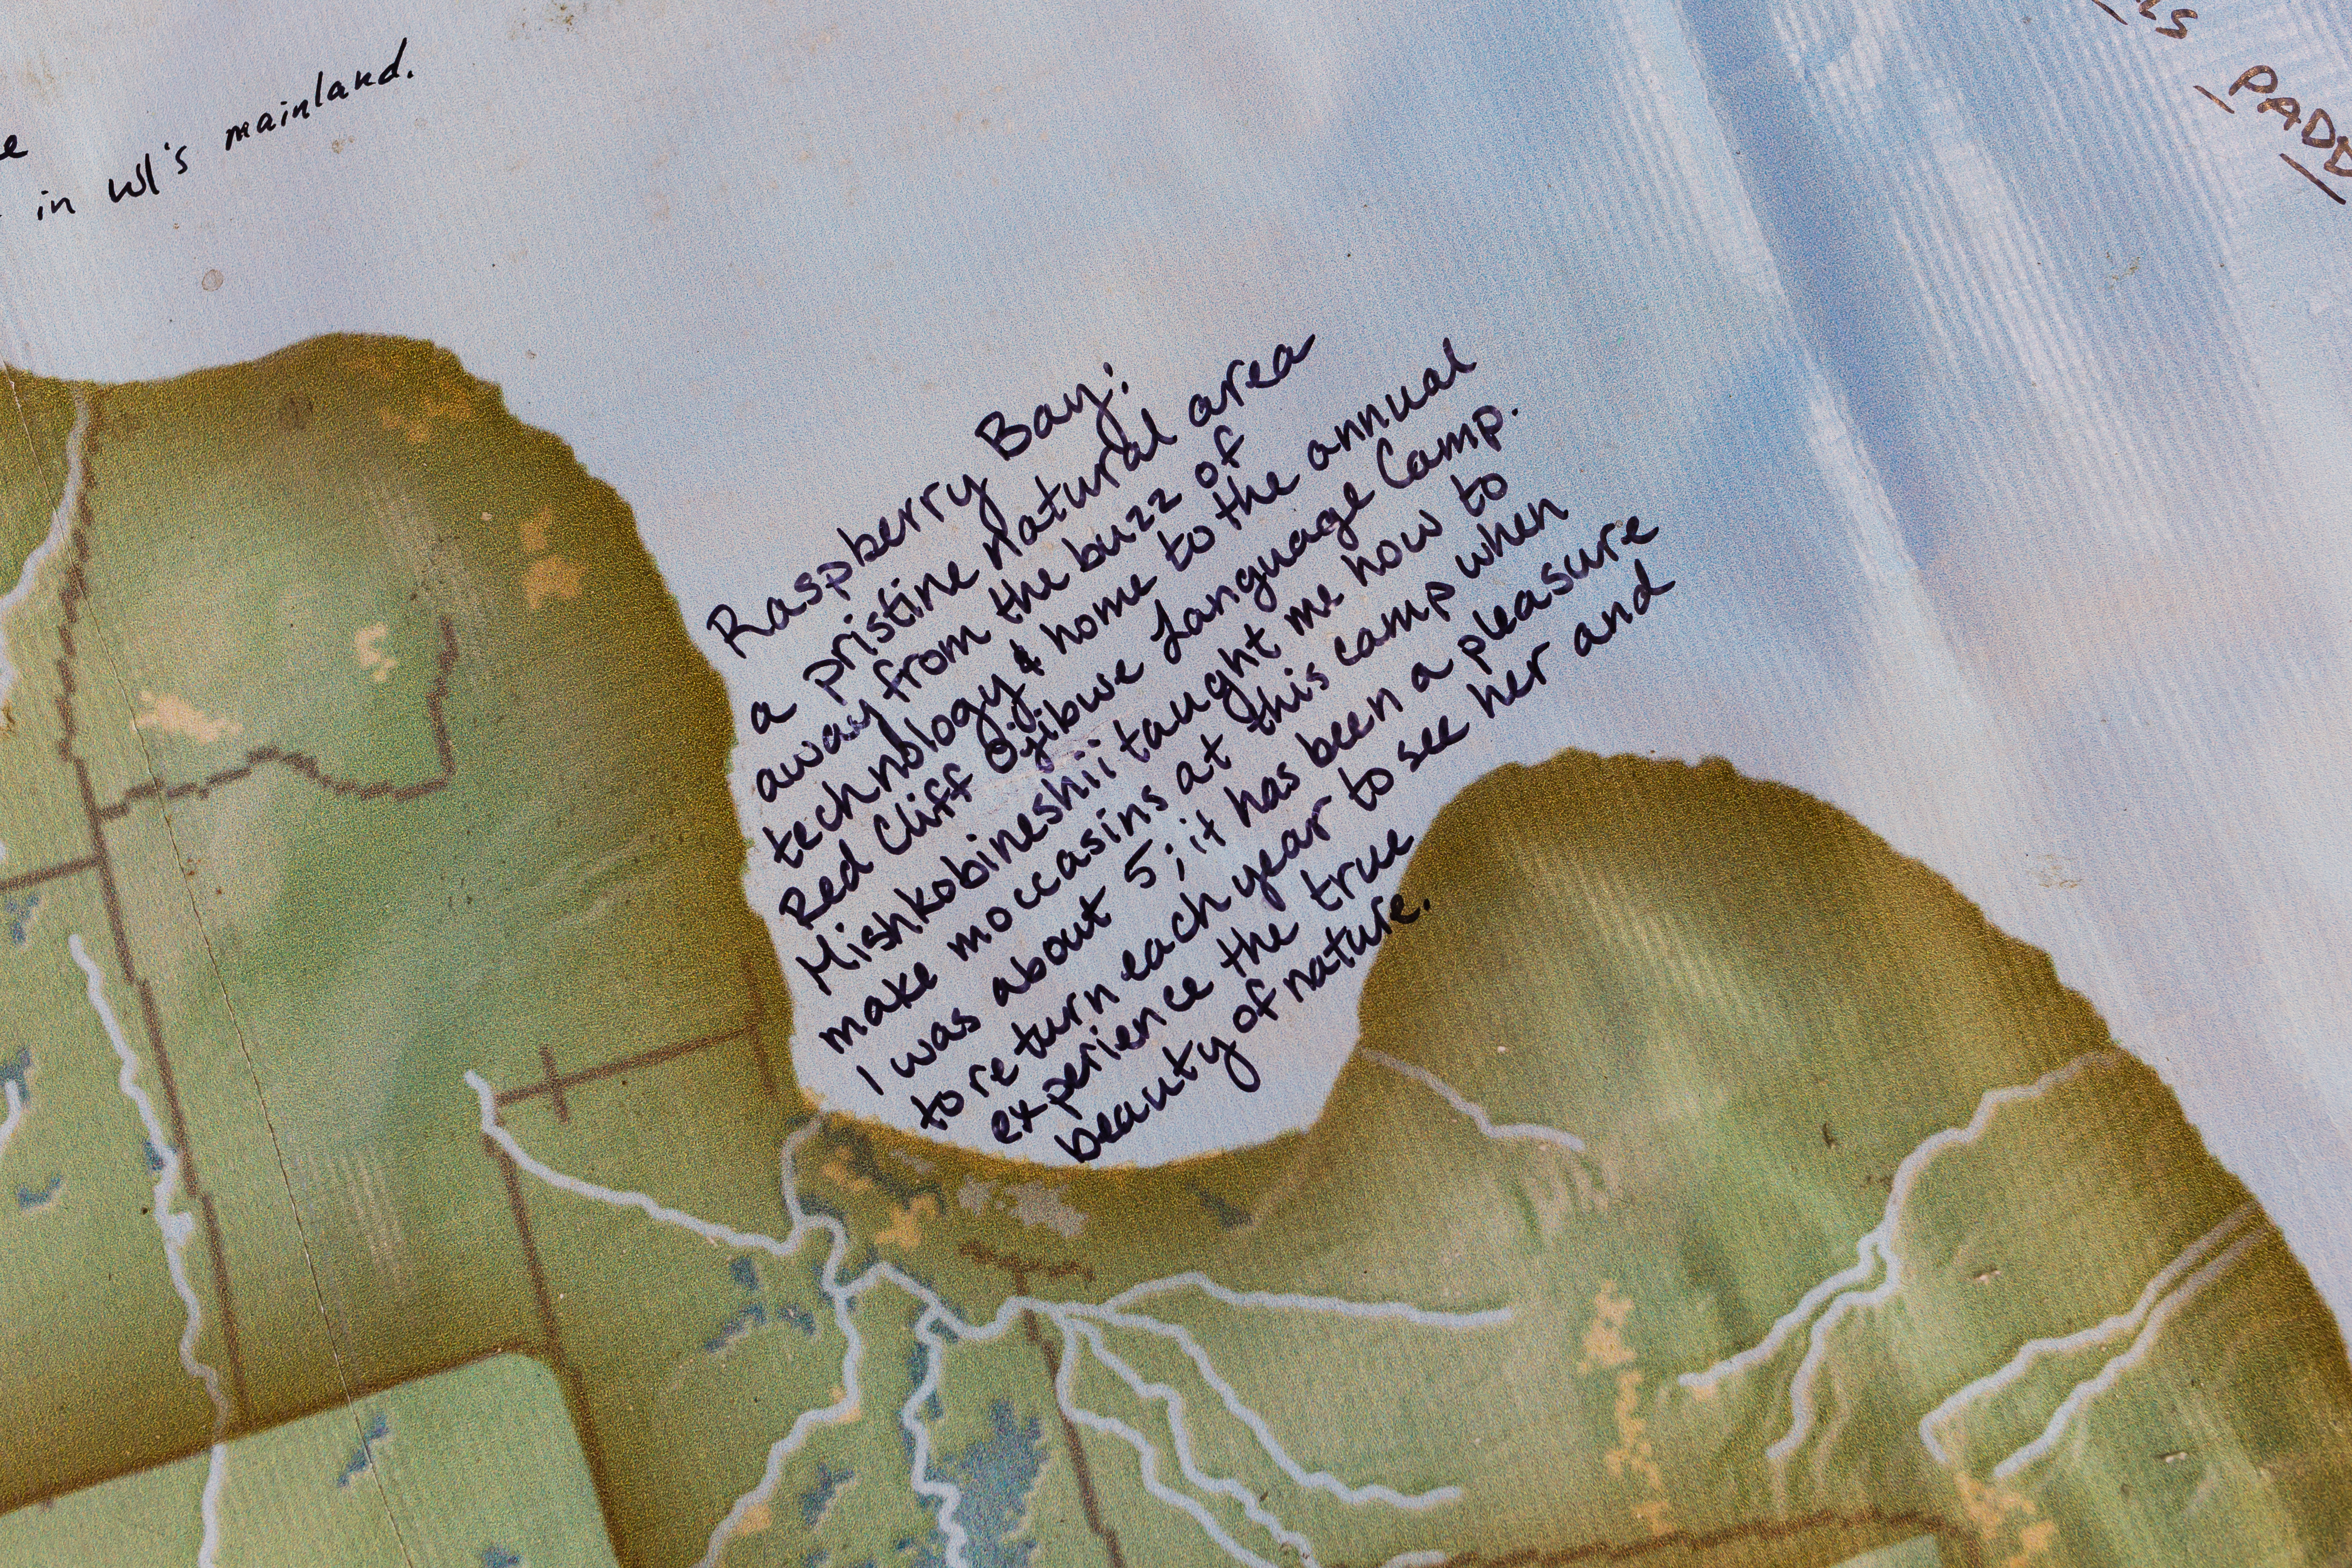 e
in WI's mainland.
Raspberry Bay:
a pristine natural area
away from the buzz of
technology & home to the annual
Red Cliff Ojibwe Language Camp.
Mishkobineshii taught me how to
make moccasins at this camp when
I was about 5; it has been a pleasure
to return each year to see her and
experience the true
beauty of nature.
PADD